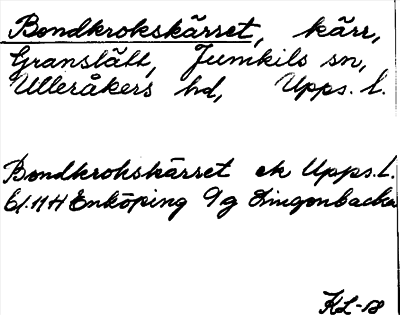 Bondkrokskärret, kärr,
Granslätt, Jumkils sn,
Ulleråkers hd, Upps. l.
Bondkrokskärret ek Upps. l.
bl. 11 H Enköping 9 g Lingonbacka
KL-58